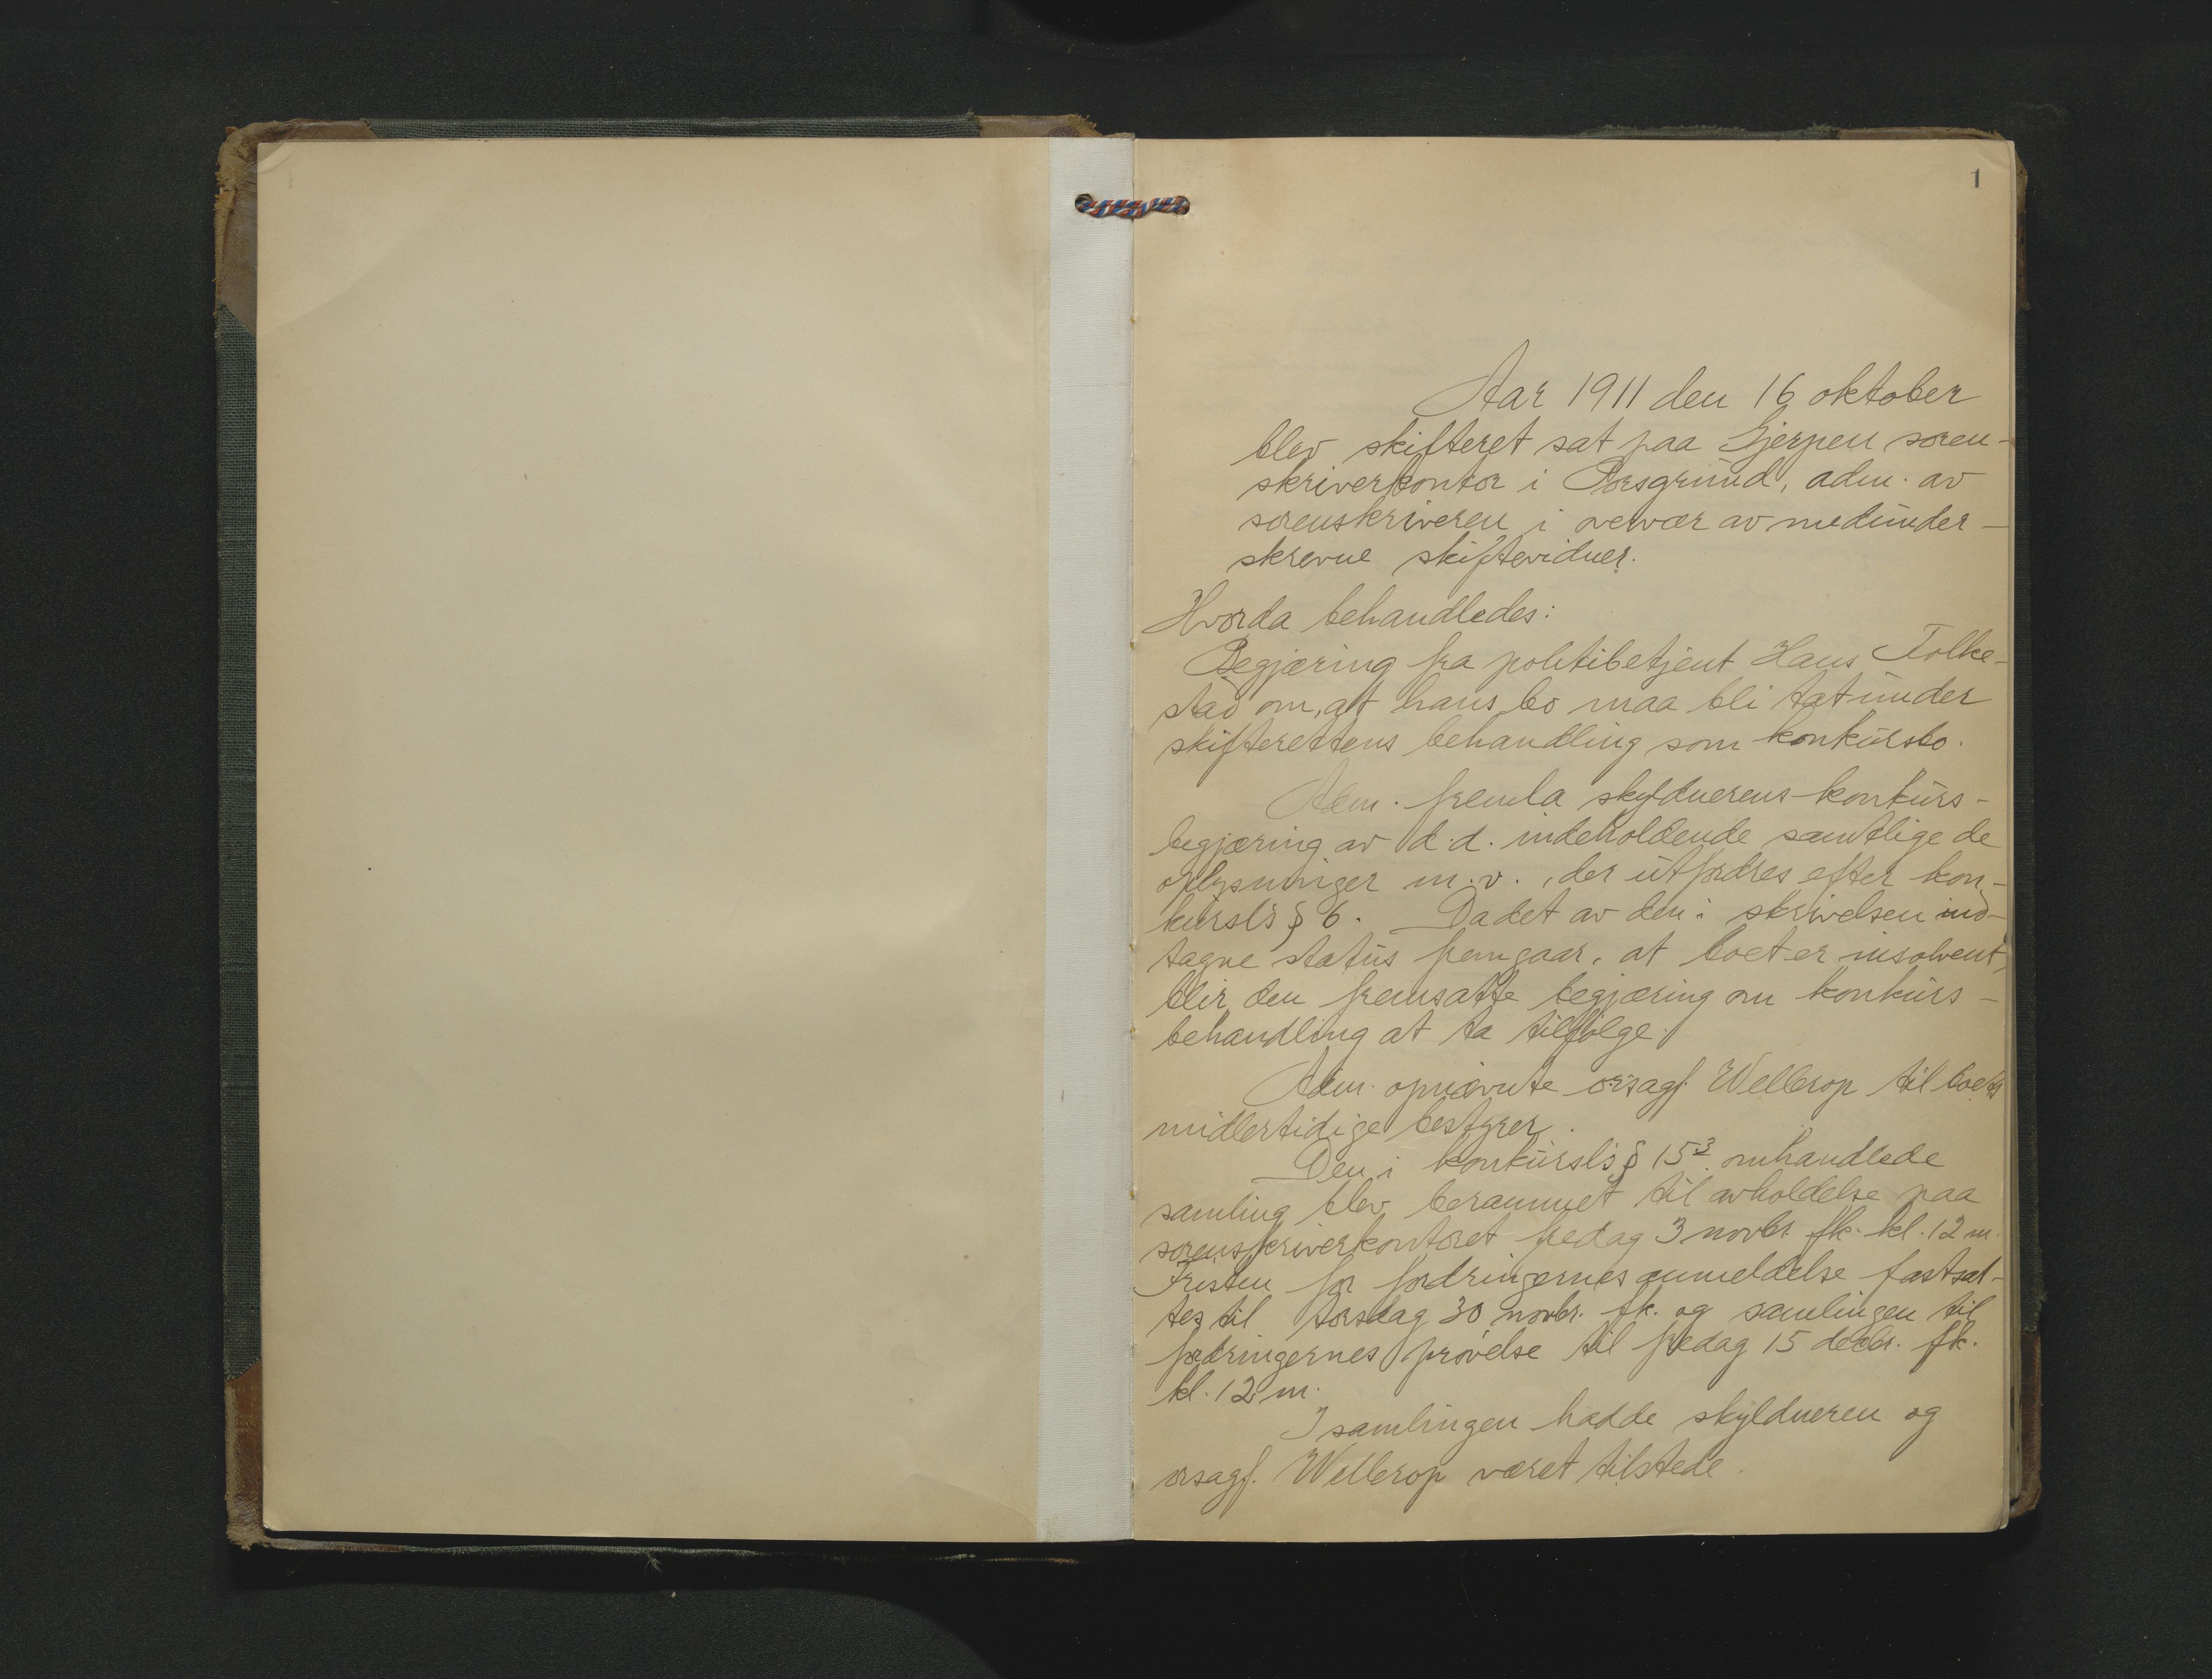 1
Aar 1911 den 16 oktober
blev skifteret sat paa Gjerpen soren-
skriverkontor i Porsgrund, adm. av
sorenskriveren i overvær av medunder-
skrevne skiftevidner.
Hvorda behandledes:
Begjæring fra politibetjent Hans Folke-
stad om, at hans bo maa bli tat under
skifterettens behandling som konkursbo.
Adm. fremla skyldnerens konkurs-
begjæring av d.d. indeholdende samtlige de
oplysninger m.v., der utfordres efter kon-
kursl's § 6. Da det av den i skrivelsen ind-
tagne status fremgaar, at boet er insolvent,
blir den fremsatte begjæring om konkurs-
behandling at ta tilfølge.
Adm. opnævnte orsagf. Wellerop til boets
midlertidige bestyrer.
Den i konkursl's § 15³ omhandlede
samling blev berammet til avholdelse paa
sorenskriverkontoret fredag 3 novbr. fk. kl. 12 m.
Fristen for fordringernes anmeldelse fastsat-
tes til torsdag 30 novbr. fk. og samlingen til
fordringernes prøvelse til fredag 15 decbr. fk.
kl. 12 m.
I samlingen hadde skyldneren og
orsagf. Wellerop været tilstede.